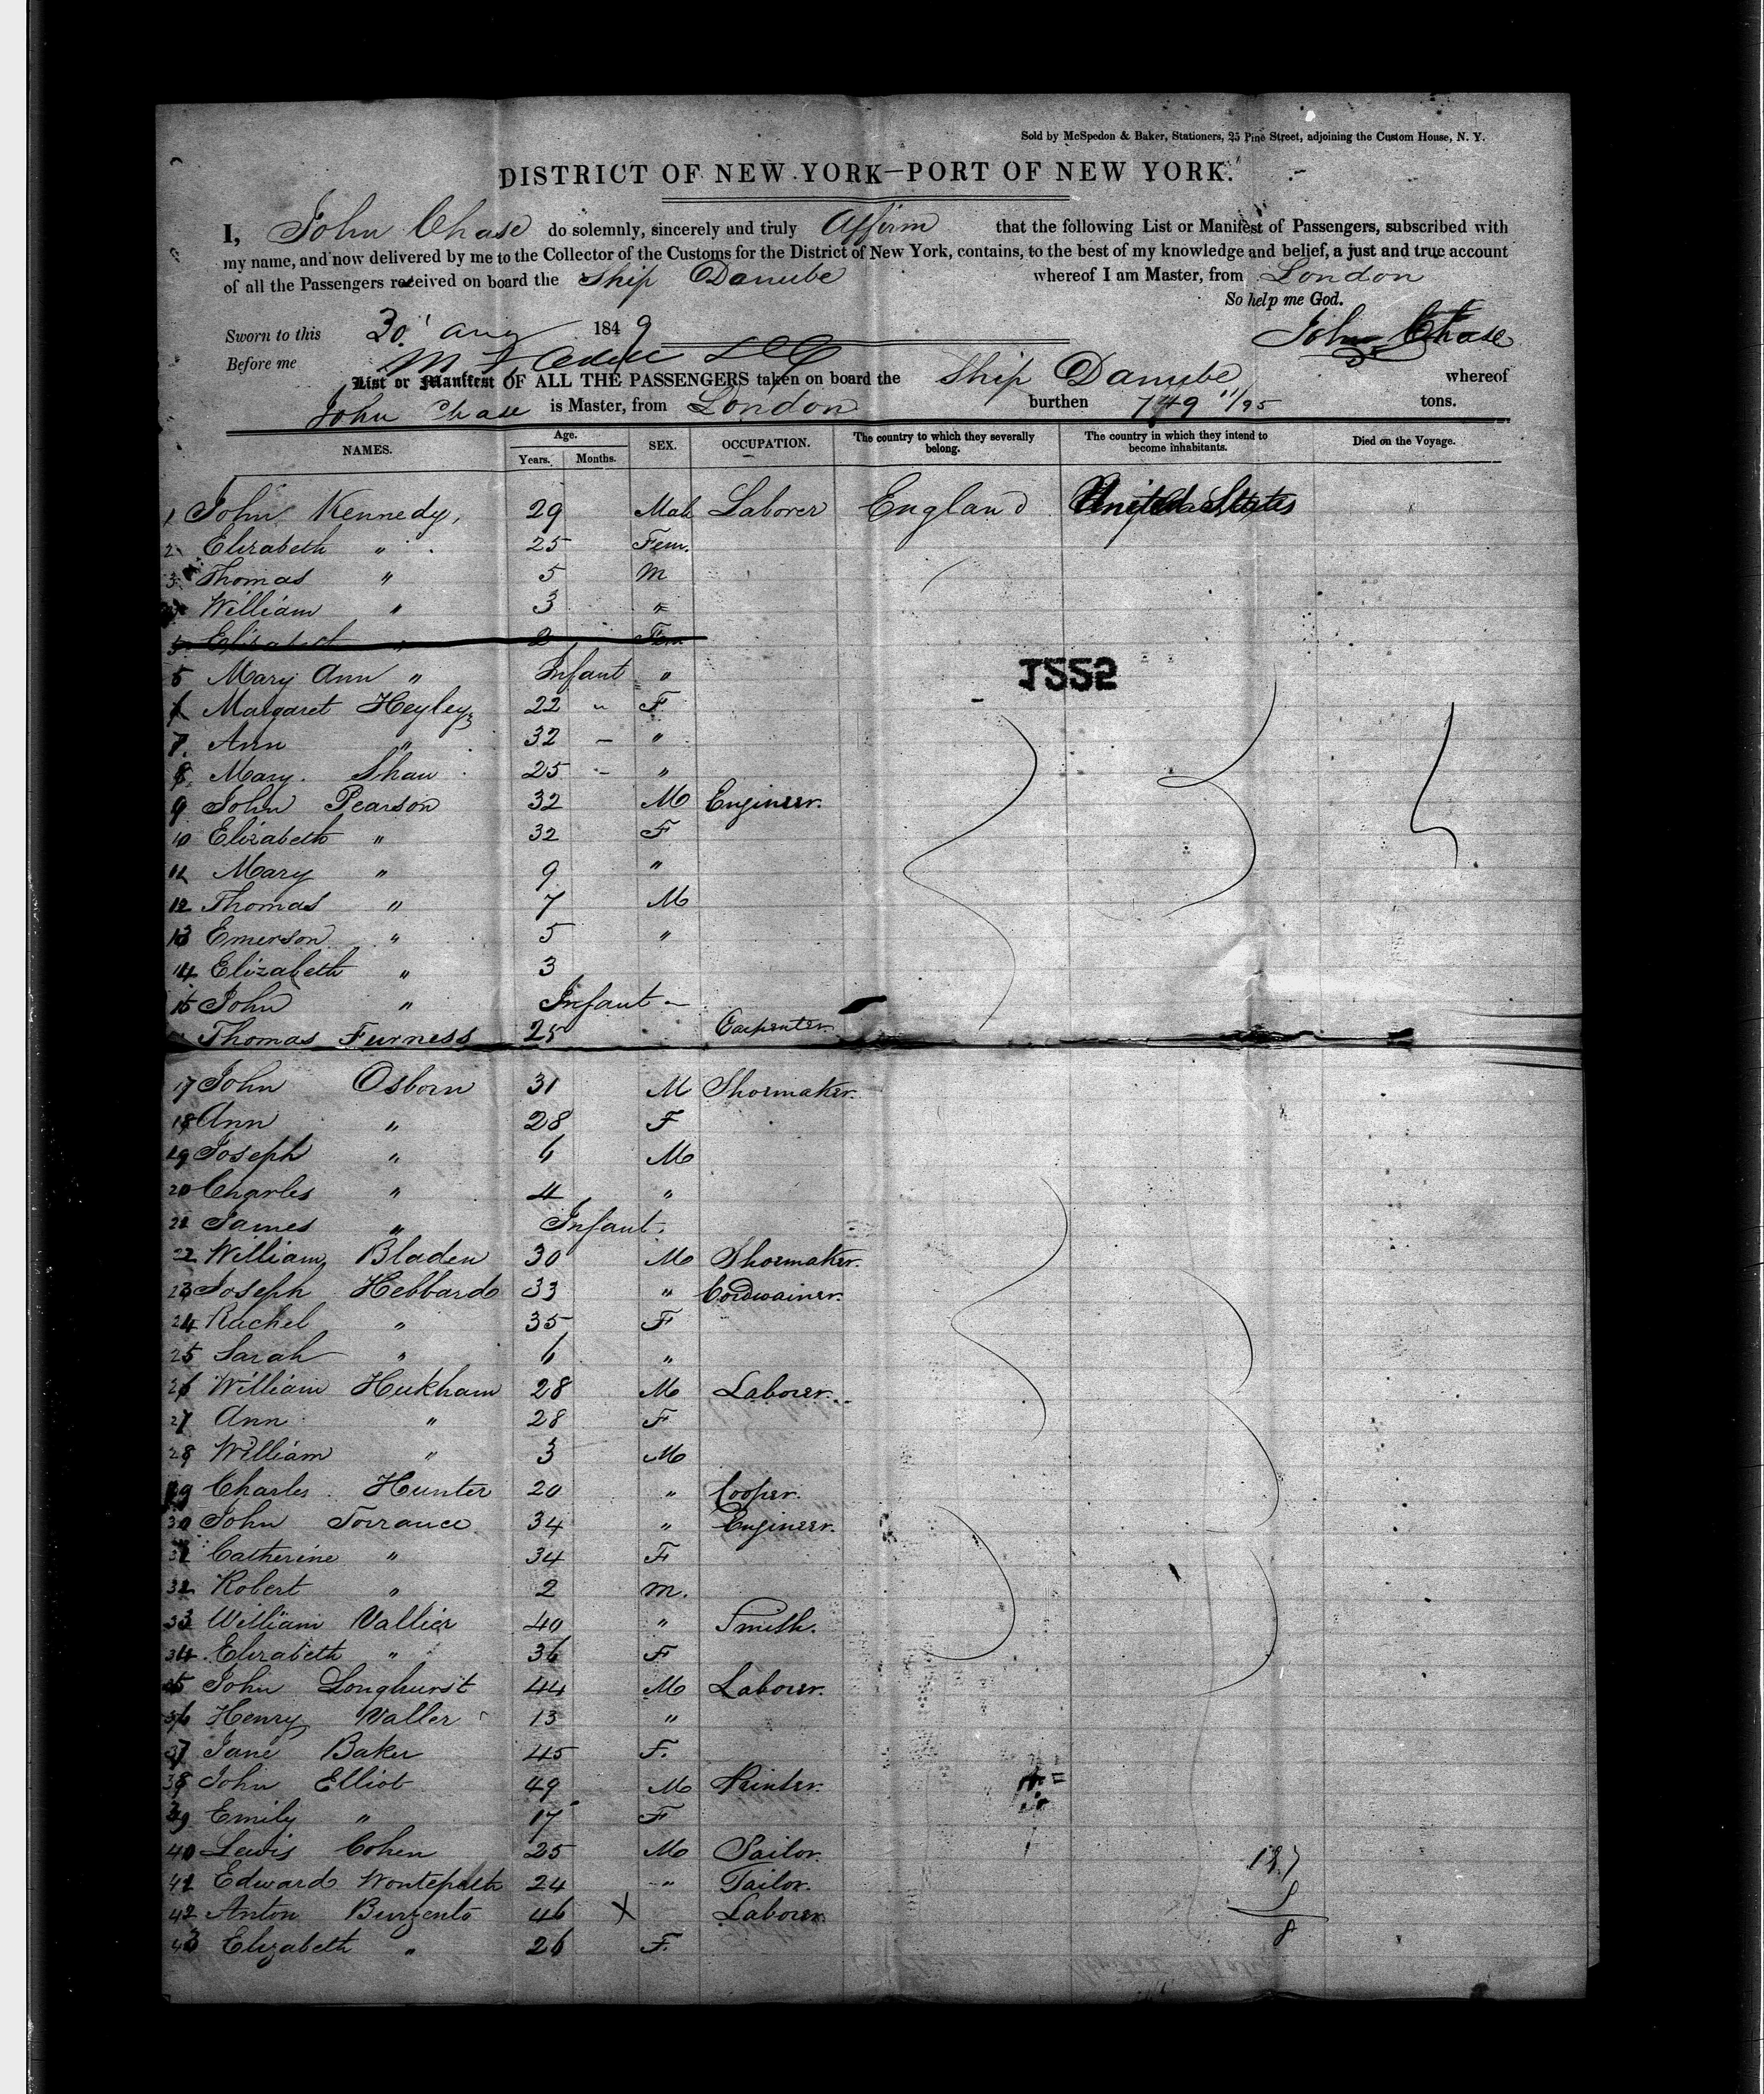 Sold by McSpedon & Baker, Stationers, 25 Pine Street, adjoining the Custom House, N. Y.
DISTRICT OF NEW YORK—PORT OF NEW YORK.
I, John Chase do solemnly, sincerely and truly Affirm that the following List or Manifest of Passengers, subscribed with
my name, and now delivered by me to the Collector of the Customs for the District of New York, contains, to the best of my knowledge and belief, a just and true account
of all the Passengers received on board the Ship Danube whereof I am Master, from London
So help me God.
Sworn to this 30' Aug 1849
John Chase
Before me
List or Manifest OF ALL THE PASSENGERS taken on board the Ship Danube whereof
John Chase is Master, from London burthen 749 11/95 tons.
NAMES. Age. Years. Months. SEX. OCCUPATION. The country to which they severally belong. The country in which they intend to become inhabitants. Died on the Voyage.
1 John Kennedy, 29 Male Laborer England United States
2 Elizabeth " 25 Fem.
3 Thomas " 5 M
4 William " 3 "
5 Elizabeth " 2 Fem
5 Mary Ann " Infant "
6 Margaret Heyley 22 " F
7. Ann " 32 – "
8. Mary. Shaw 25 – "
9 John Pearson 32 M Engineer.
10 Elizabeth " 32 F
11 Mary " 9 "
12 Thomas " 7 M
13 Emerson " 5 "
14 Elizabeth " 3
15 John " Infant –
Thomas Furness 25 Carpenter.
17 John Osborn 31 M Shoemaker.
18 Ann " 28 F
19 Joseph " 6 M
20 Charles " 4 "
21 James " Infant.
22 William Bladen 30 M Shoemaker.
23 Joseph Hebbard 33 " Cordwainer.
24 Rachel " 35 F
25 Sarah " 6 "
26 William Huckham 28 M Laborer.
27 Ann " 28 F
28 William " 3 M
29 Charles Hunter 20 " Cooper.
30 John Torrance 34 " Engineer.
31 Catherine " 34 F
32 Robert " 2 M.
33 William Vallier 40 " Smith.
34 Elizabeth " 36 F
35 John Longhurst 44 M Laborer.
36 Henry Valler 13 "
37 Jane Baker 45 F.
38 John Elliot 49 M Painter.
39 Emily " 17 F
40 Lewis Cohen 25 M Sailor.
41 Edward 24 " Tailor.
42 Anton 46 X Laborer
43 Elizabeth " 26 F.